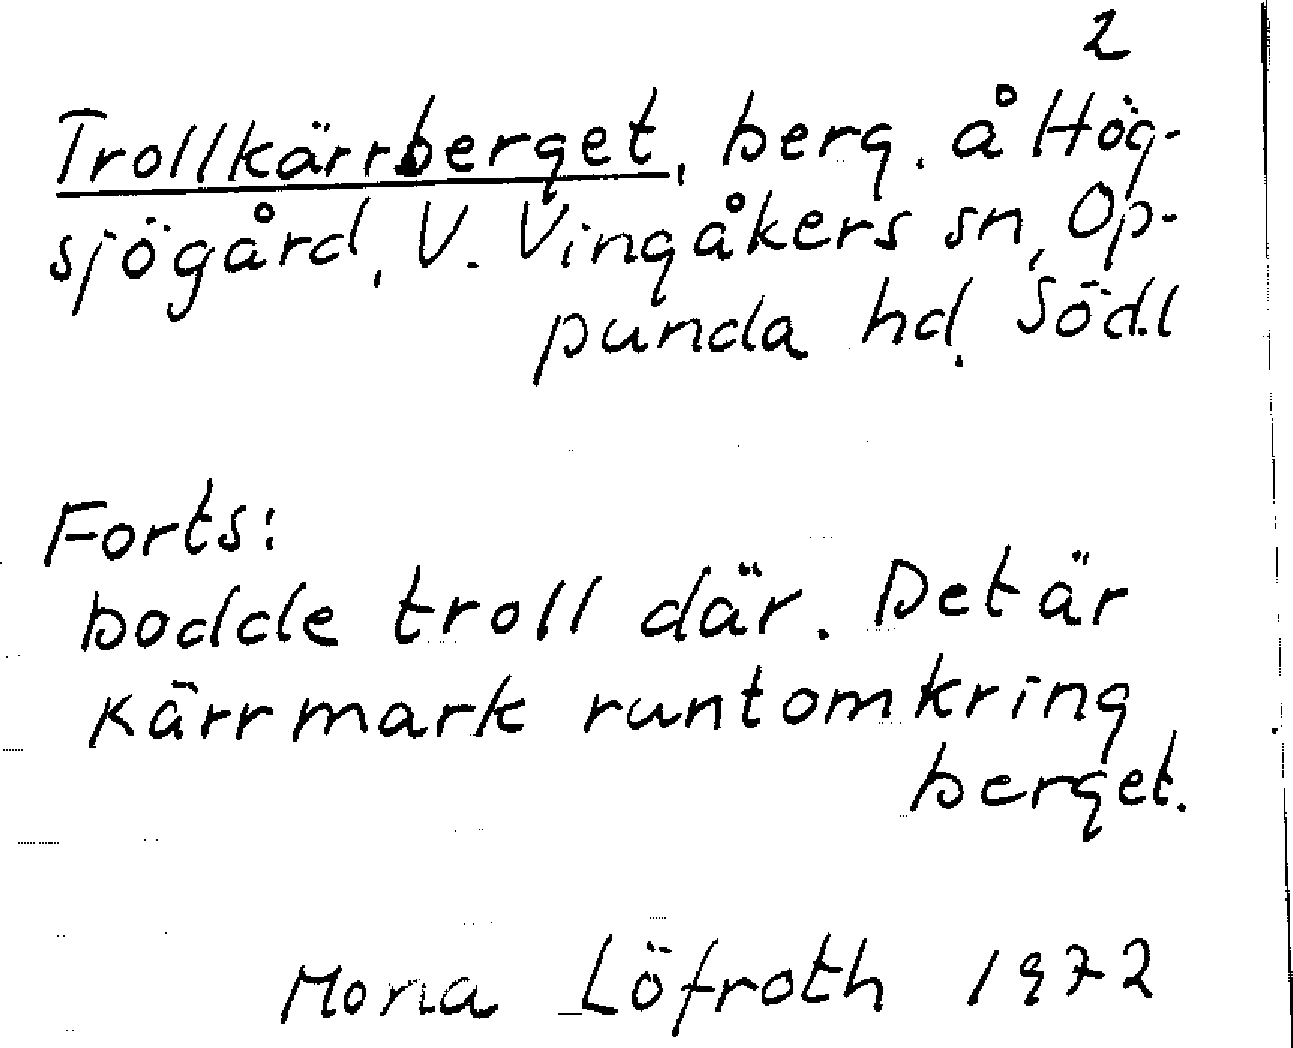 2
Trollkärrberget, berg. å Hög-
sjögård, V. Vingåkers sn, Op-
punda hd. Södl
Forts:
bodde troll där. Det är
kärrmark runtomkring
berget.
Mona Löfroth 1972